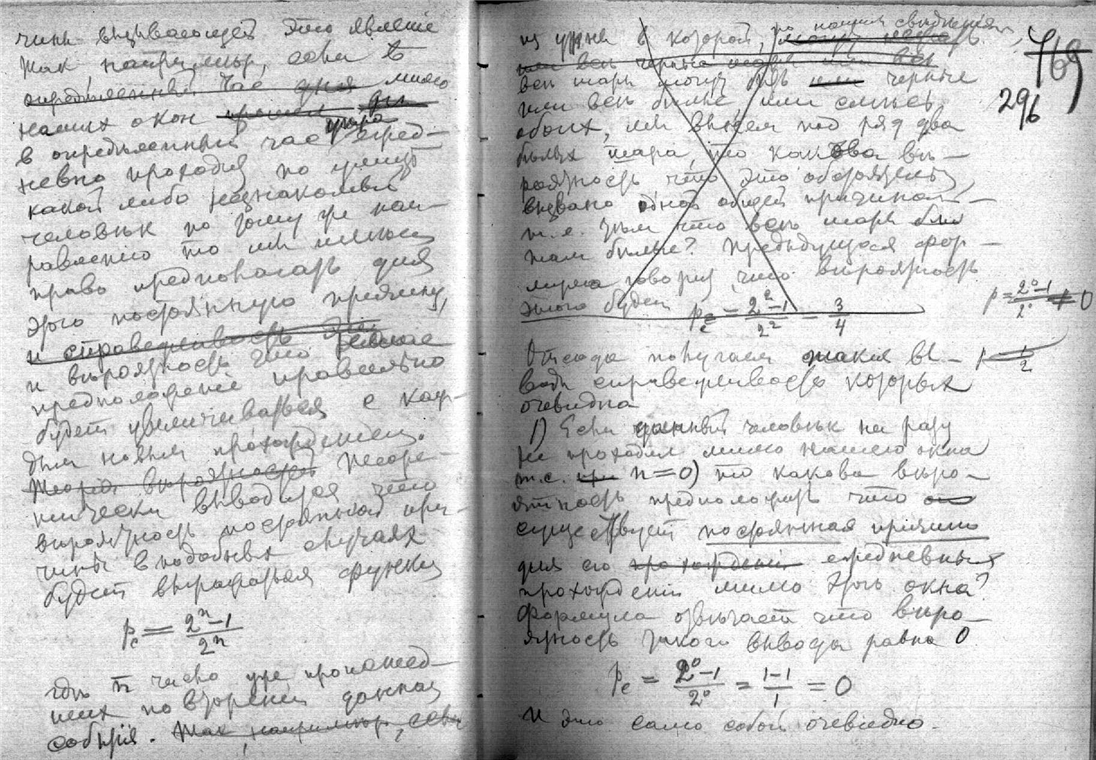 чины вызывающей это явленіе
Так, например, если в
определенный час дня мимо
наших окон прошел
утра
в определенный час еред-
невно проходил по улице
какой либо незнакомый
человек по тому же нап-
равленію то мы имеем
право предполагать для
этого постоянную причину,
и справедливость
и вѣроятность что
предположеніе правильно
будет увеличиваться с каж-
дым новым прохожденіем.
Теорія вѣроятностей Теоре-
тически выводится что
вѣроятность постоянной при-
чины в подобных случаях
будет выражаться функціей
p_c = (2^n-1)/2^n
гдѣ n число уже происшед-
ших повтореній данная
событія. Так, например, если
из урны в которой, по нашим свѣдѣніям,
769
296
всѣ шары могут быть или черные
или всѣ белые или смѣсь
обоих, мы вынем под ряд два
белых шара, то какова вѣ-
роятность что это обстоятель
вызвано одной общей причиной
т.е. тѣм что всѣ шары были
там белые? Предыдущая фор-
мула говорит, что вѣроятность
этого будет
p_c = (2^2-1)/2^2 = 3/4
p = (2^0-1)/2^0 ≠ 0
Отсюда получаем такія вы-
p 1/2
воды справедливость которых
очевидна
1) Если данный человек ни разу
не проходил мимо нашего окна
т.е. при n=0) то какова вѣро-
ятность предположить что
существует постоянная причина
для его прохожденія ередневных
прохожденій мимо этого окна?
Формула отвѣчает что вѣро-
ятность такого вывода равна 0
p_c = (2^0-1)/2^0 = (1-1)/1 = 0
И это само собой очевидно.